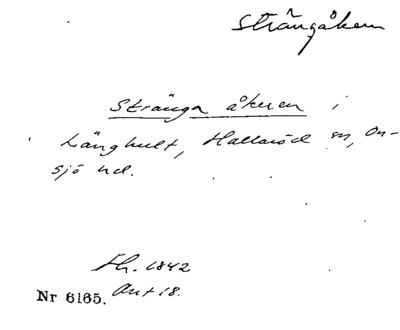 Strängåkern
Stränga åkeren i
Långhult, Hallaröd sn, On-
sjö hd.
Lh. 1842
Nr 6165. Akt 18.